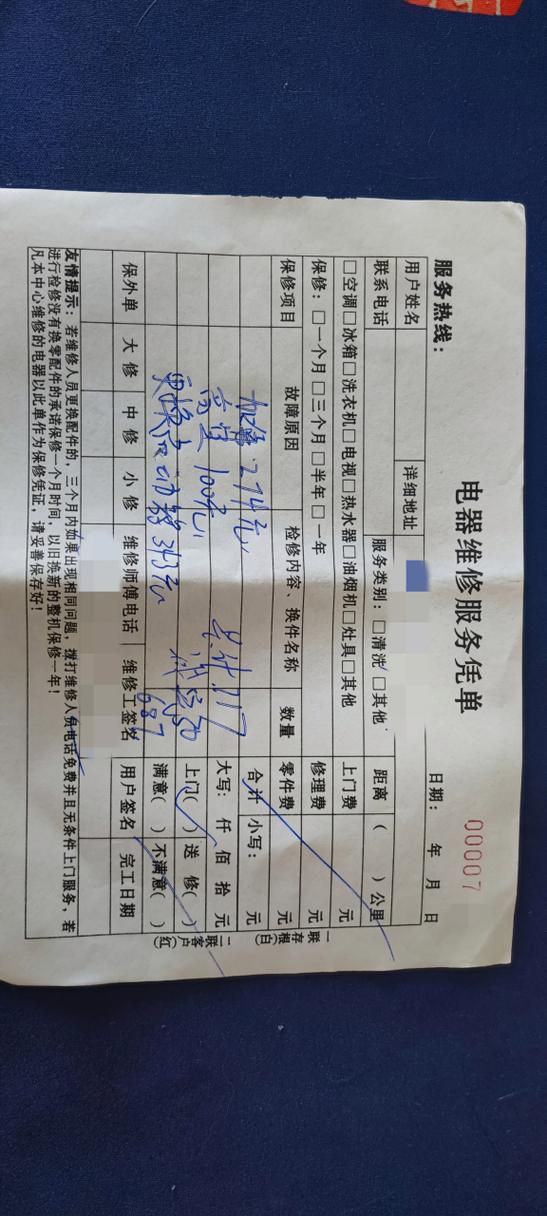 电器维修服务凭单
00007
服务热线：
日期： 年 月 日
用户姓名 详细地址
联系电话 服务类别：□清洗 □其他 距离（ ）公里
□空调□冰箱□洗衣机□电视□热水器□油烟机□灶具□其他 上门费 元
保修：□一个月□三个月□半年□一年 修理费 元
保修项目 故障原因 检修内容、换件名称 数量 零件费 元
加 274元 合计 小写： 元
高空 100元 共计717 大写： 仟 佰 拾 元
更换启动器 343元 上门（ ）送修（ ）
687 满意（ ）不满意（ ）
保外单 大修 中修 小修 维修师傅电话 维修工签名 用户签名 完工日期
一联存根（白）
二联客户（红）
友情提示：若维修人员更换配件的，三个月内如果出现相同问题，拨打维修人员电话免费并且无条件上门服务，若
进行检修没有换零配件的承诺保修一个月时间，以旧换新的整机保修一年！
凡本中心维修的电器以此单作为保修凭证，请妥善保存好！